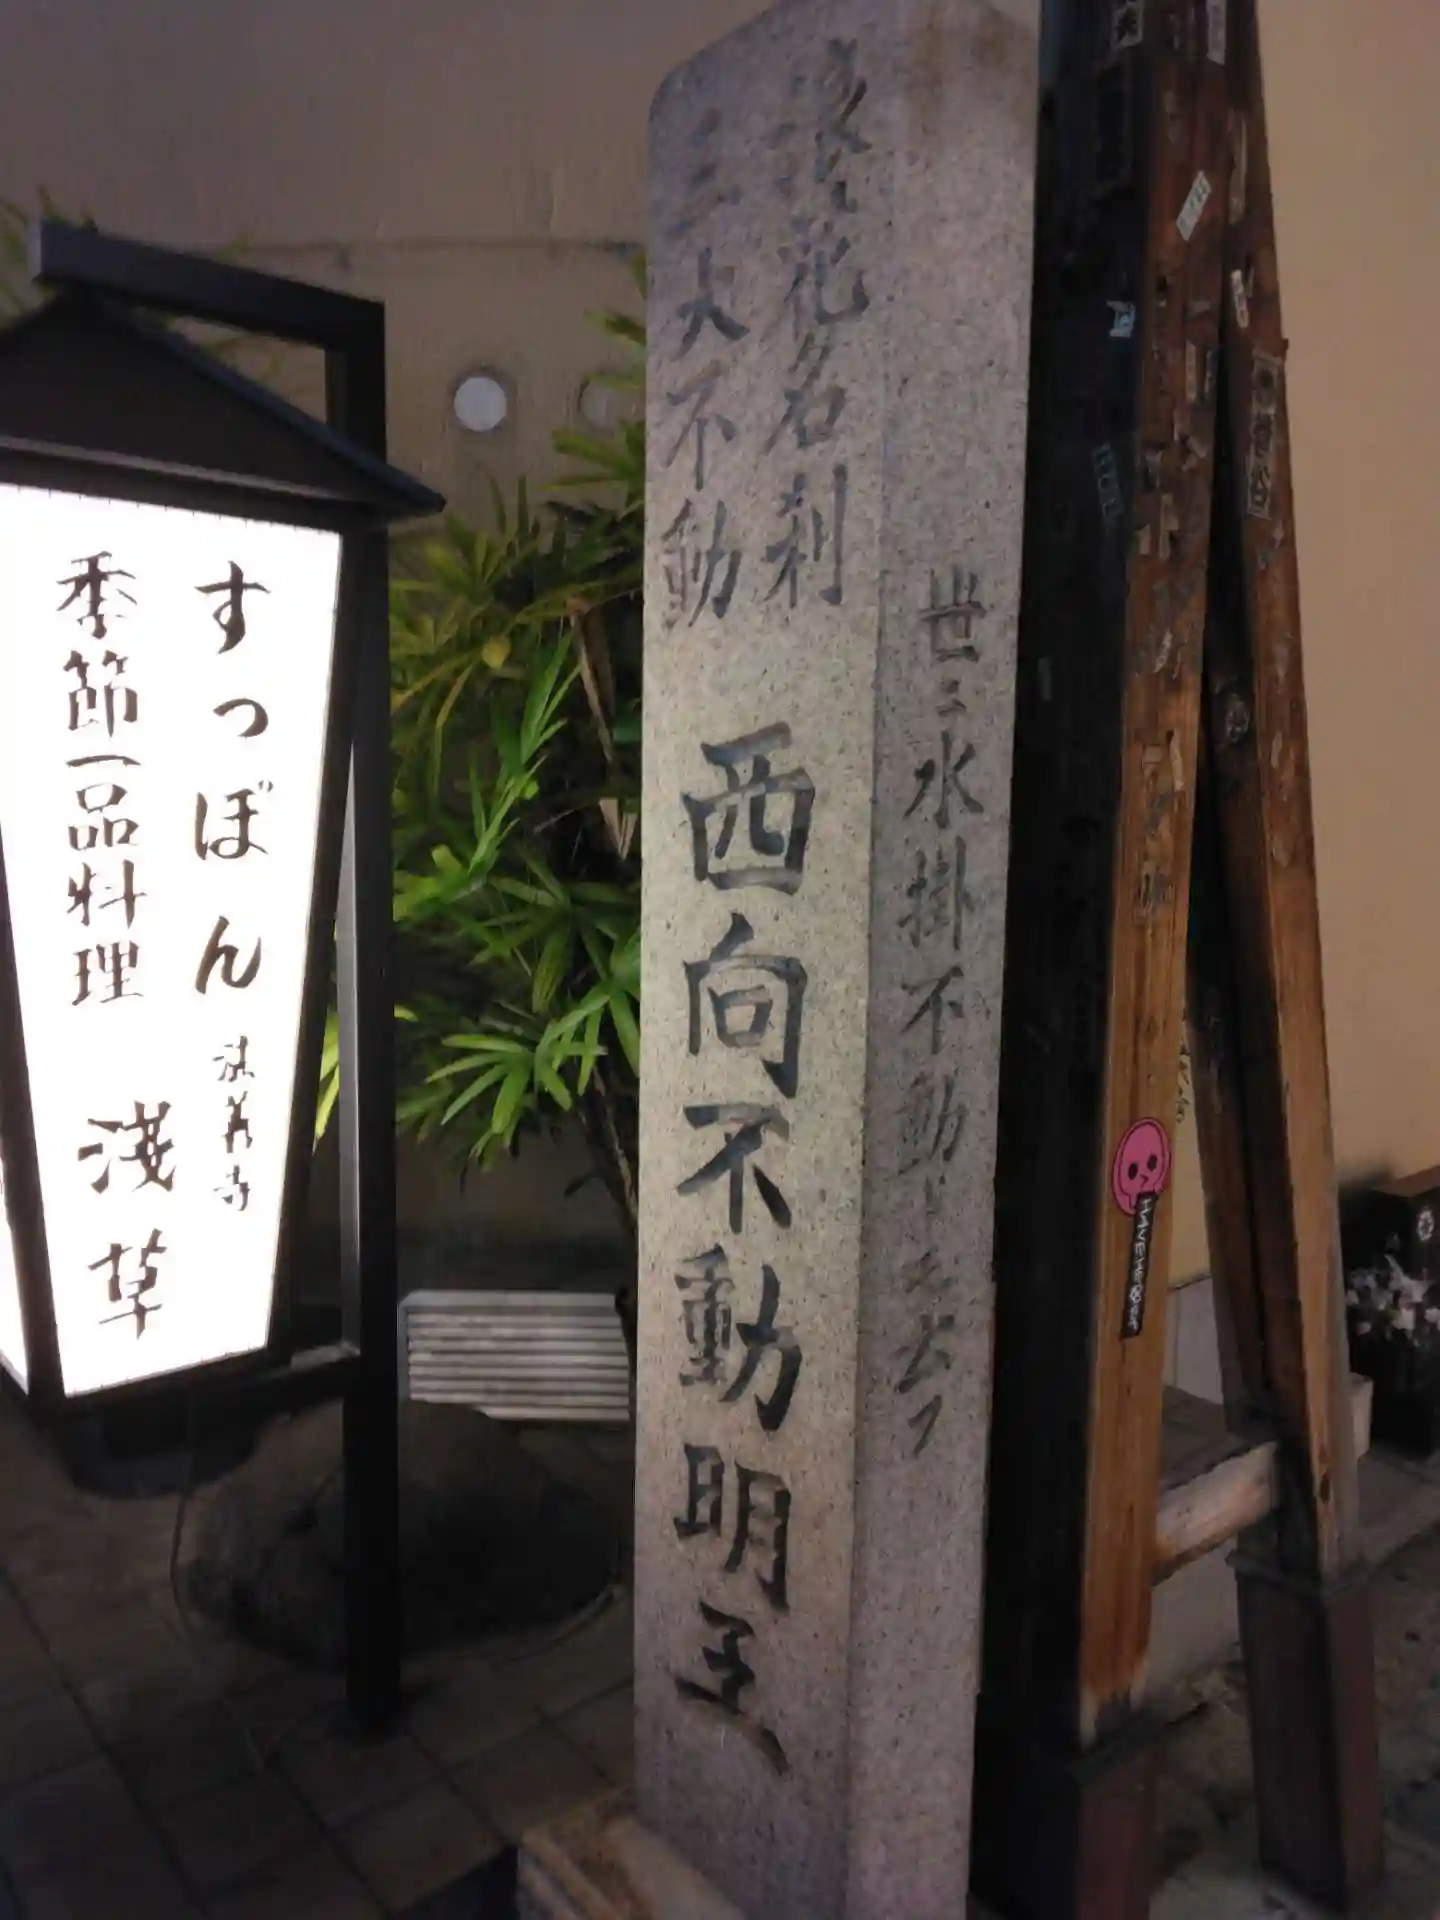 すっぽん 法善寺
季節一品料理 浅草
浪花名刹
三大不動
西向不動明王
世ニ水掛不動トモ云フ